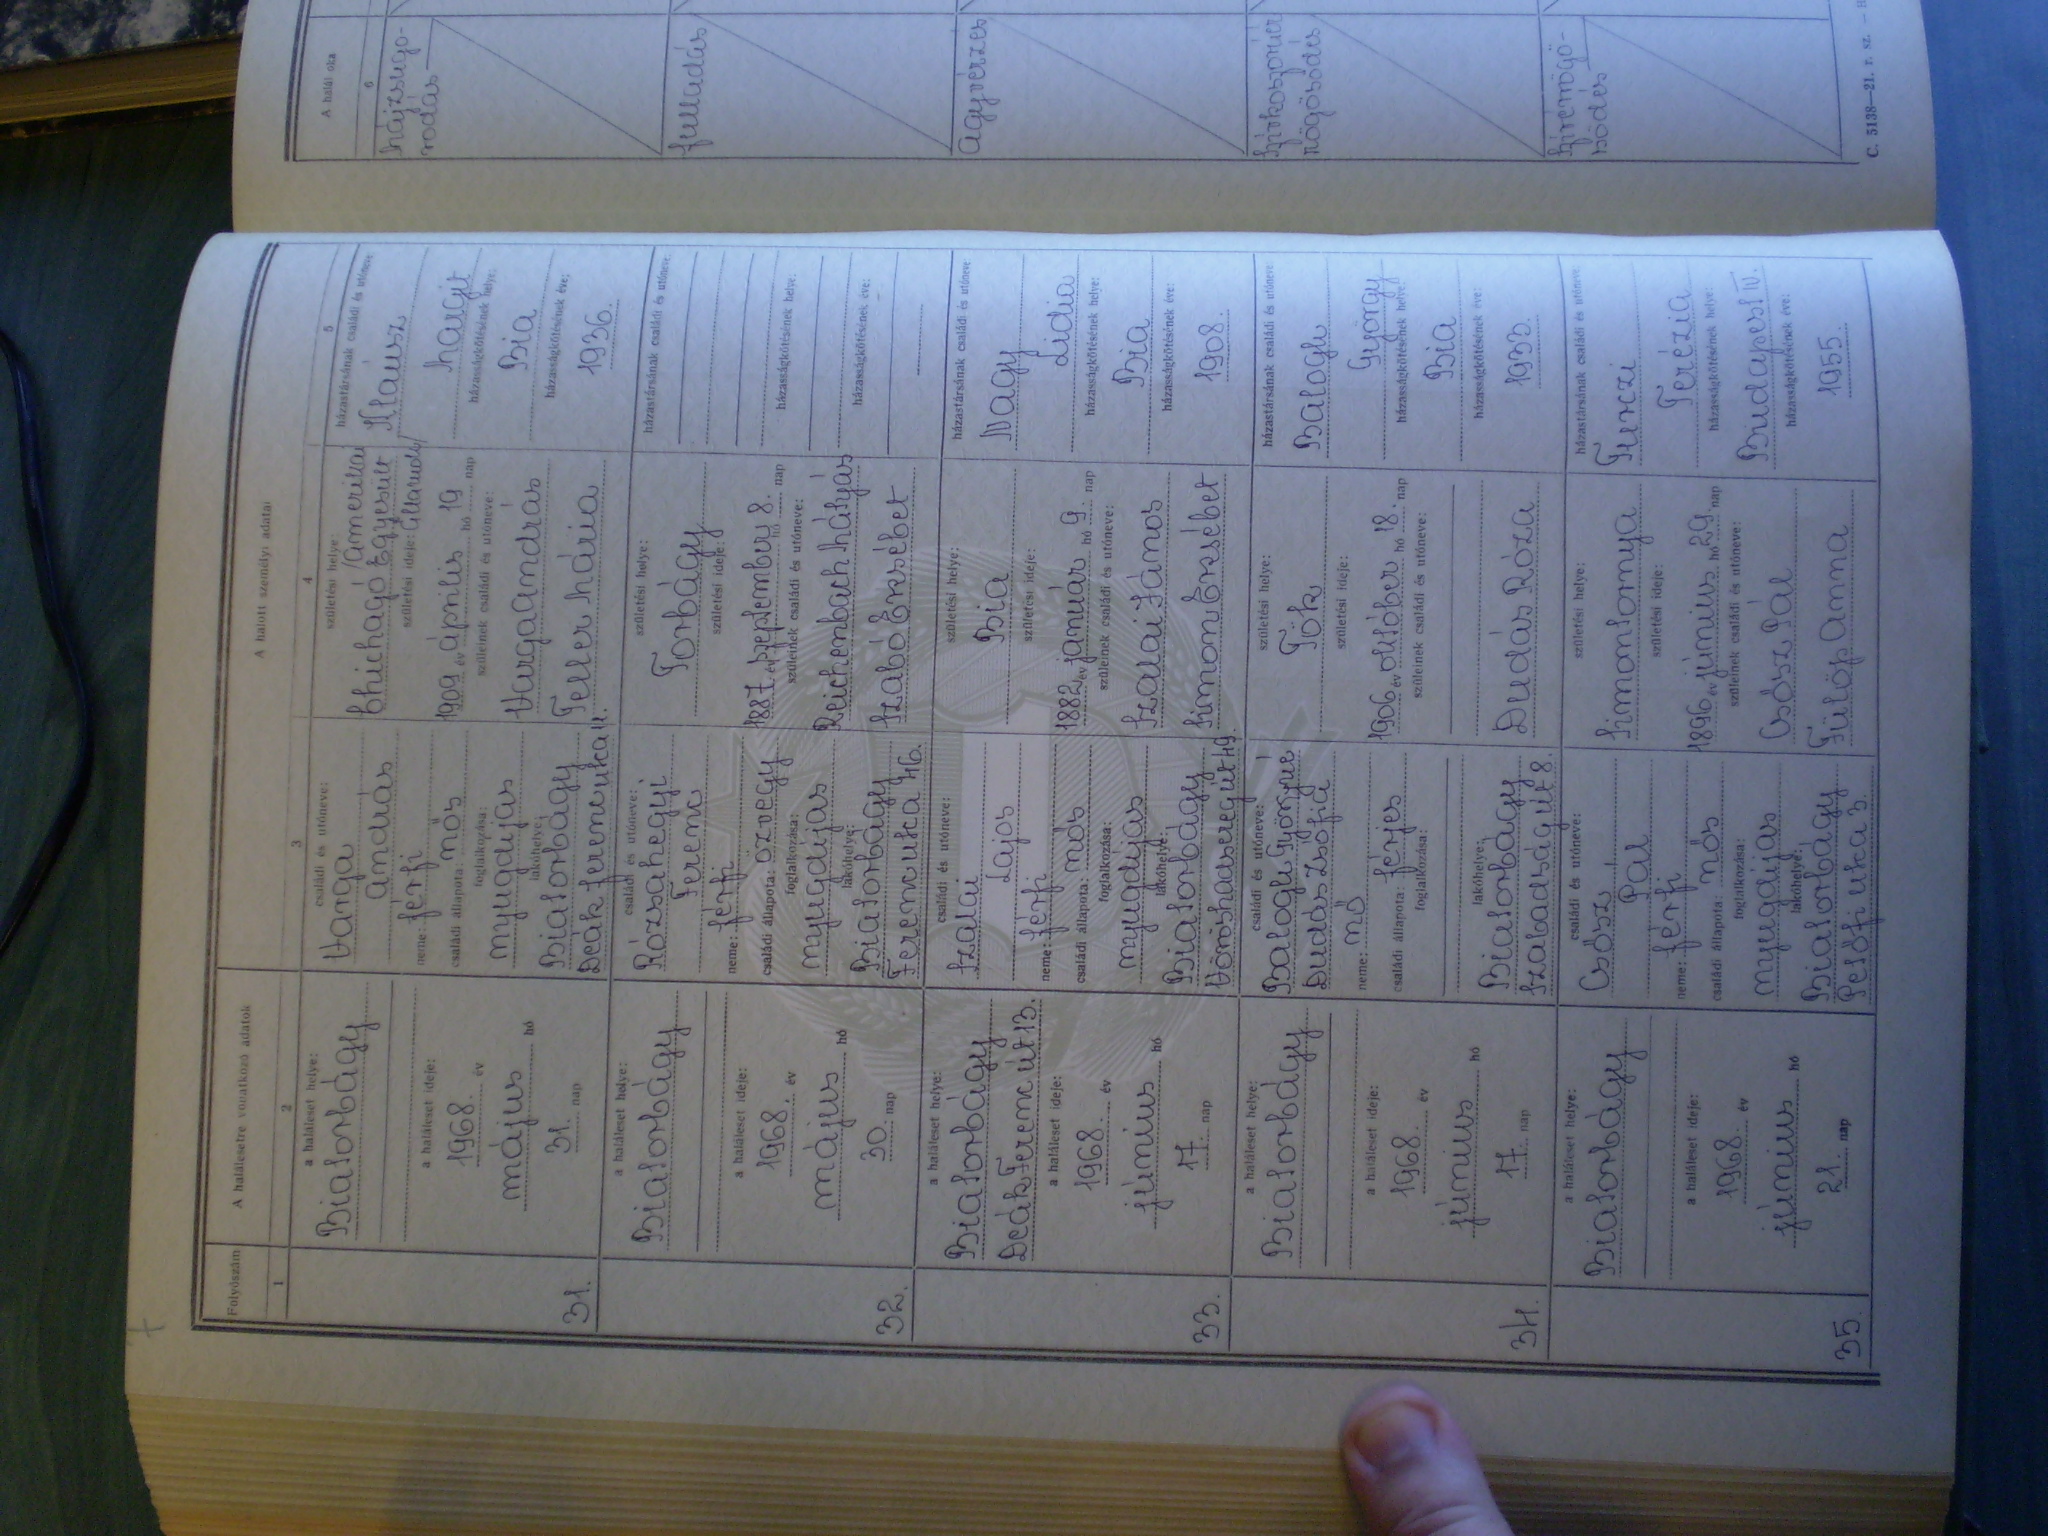 Folyószám
A halálesetre vonatkozó adatok
A halott személyi adatai
1
2
3
4
5
31.
a haláleset helye:
Biatorbágy
a haláleset ideje:
1968. év
május hó
31. nap
családi és utóneve:
Varga
András
neme: férfi
családi állapota: nős
foglalkozása:
nyugdíjas
lakóhelye:
Biatorbágy
Deák Ferenc utca 11.
születési helye:
Chichagó /Amerikai
Egyesült
születési ideje: Államok/
1909 év április hó 19 nap
szüleinek családi és utóneve:
Varga András
Teller Mária
házastársának családi és utóneve
Klausz
Margit
házasságkötésének helye:
Bia
házasságkötésének éve:
1936.
32.
a haláleset helye:
Biatorbágy
a haláleset ideje:
1968. év
május hó
30. nap
családi és utóneve:
Rózsahegyi
Ferenc
neme: férfi
családi állapota: özvegy
foglalkozása:
nyugdíjas
lakóhelye:
Biatorbágy
Ferenc utca 46.
születési helye:
Torbágy
születési ideje:
1887. év szeptember hó 8. nap
szüleinek családi és utóneve:
Reichenbach Mátyás
Szabó Erzsébet
házastársának családi és utóneve:
házasságkötésének helye:
házasságkötésének éve:
33.
a haláleset helye:
Biatorbágy
Deák Ferenc út 13.
a haláleset ideje:
1968. év
június hó
17. nap
családi és utóneve:
Szalai
Lajos
neme: férfi
családi állapota: nős
foglalkozása:
nyugdíjas
lakóhelye:
Biatorbágy
Vöröshadsereg út 49.
születési helye:
Bia
születési ideje:
1882 év január hó 9 nap
szüleinek családi és utóneve:
Szalai János
Simon Erzsébet
házastársának családi és utóneve
Nagy
Lidia
házasságkötésének helye:
Bia
házasságkötésének éve:
1908.
34.
a haláleset helye:
Biatorbágy
a haláleset ideje:
1968. év
június hó
17. nap
családi és utóneve:
Balogh Györgyné
Dudás Zsófia
neme: nő
családi állapota: férjes
foglalkozása:
lakóhelye:
Biatorbágy
Szabadság út 8.
születési helye:
Tök
születési ideje:
1906 év október hó 18. nap
szüleinek családi és utóneve:
Dudás Róza
házastársának családi és utóneve
Balogh
György
házasságkötésének helye:
Bia
házasságkötésének éve:
1933.
35.
a haláleset helye:
Biatorbágy
a haláleset ideje:
1968. év
június hó
21. nap
családi és utóneve:
Csősz
Pál
neme: férfi
családi állapota: nős
foglalkozása:
nyugdíjas
lakóhelye:
Biatorbágy
Petőfi utca 3.
születési helye:
Simontornya
születési ideje:
1896 év június hó 29 nap
szüleinek családi és utóneve:
Csősz Pál
Fülöp Anna
házastársának családi és utóneve
Turczi
Terézia
házasságkötésének helye:
Budapest IV.
házasságkötésének éve:
1955.
A halál oka
6
májzsugo-
rodás
fulladás
Agyvérzés
Szívkoszorúér
rögösödés
C. 5138—21. r. sz. — H